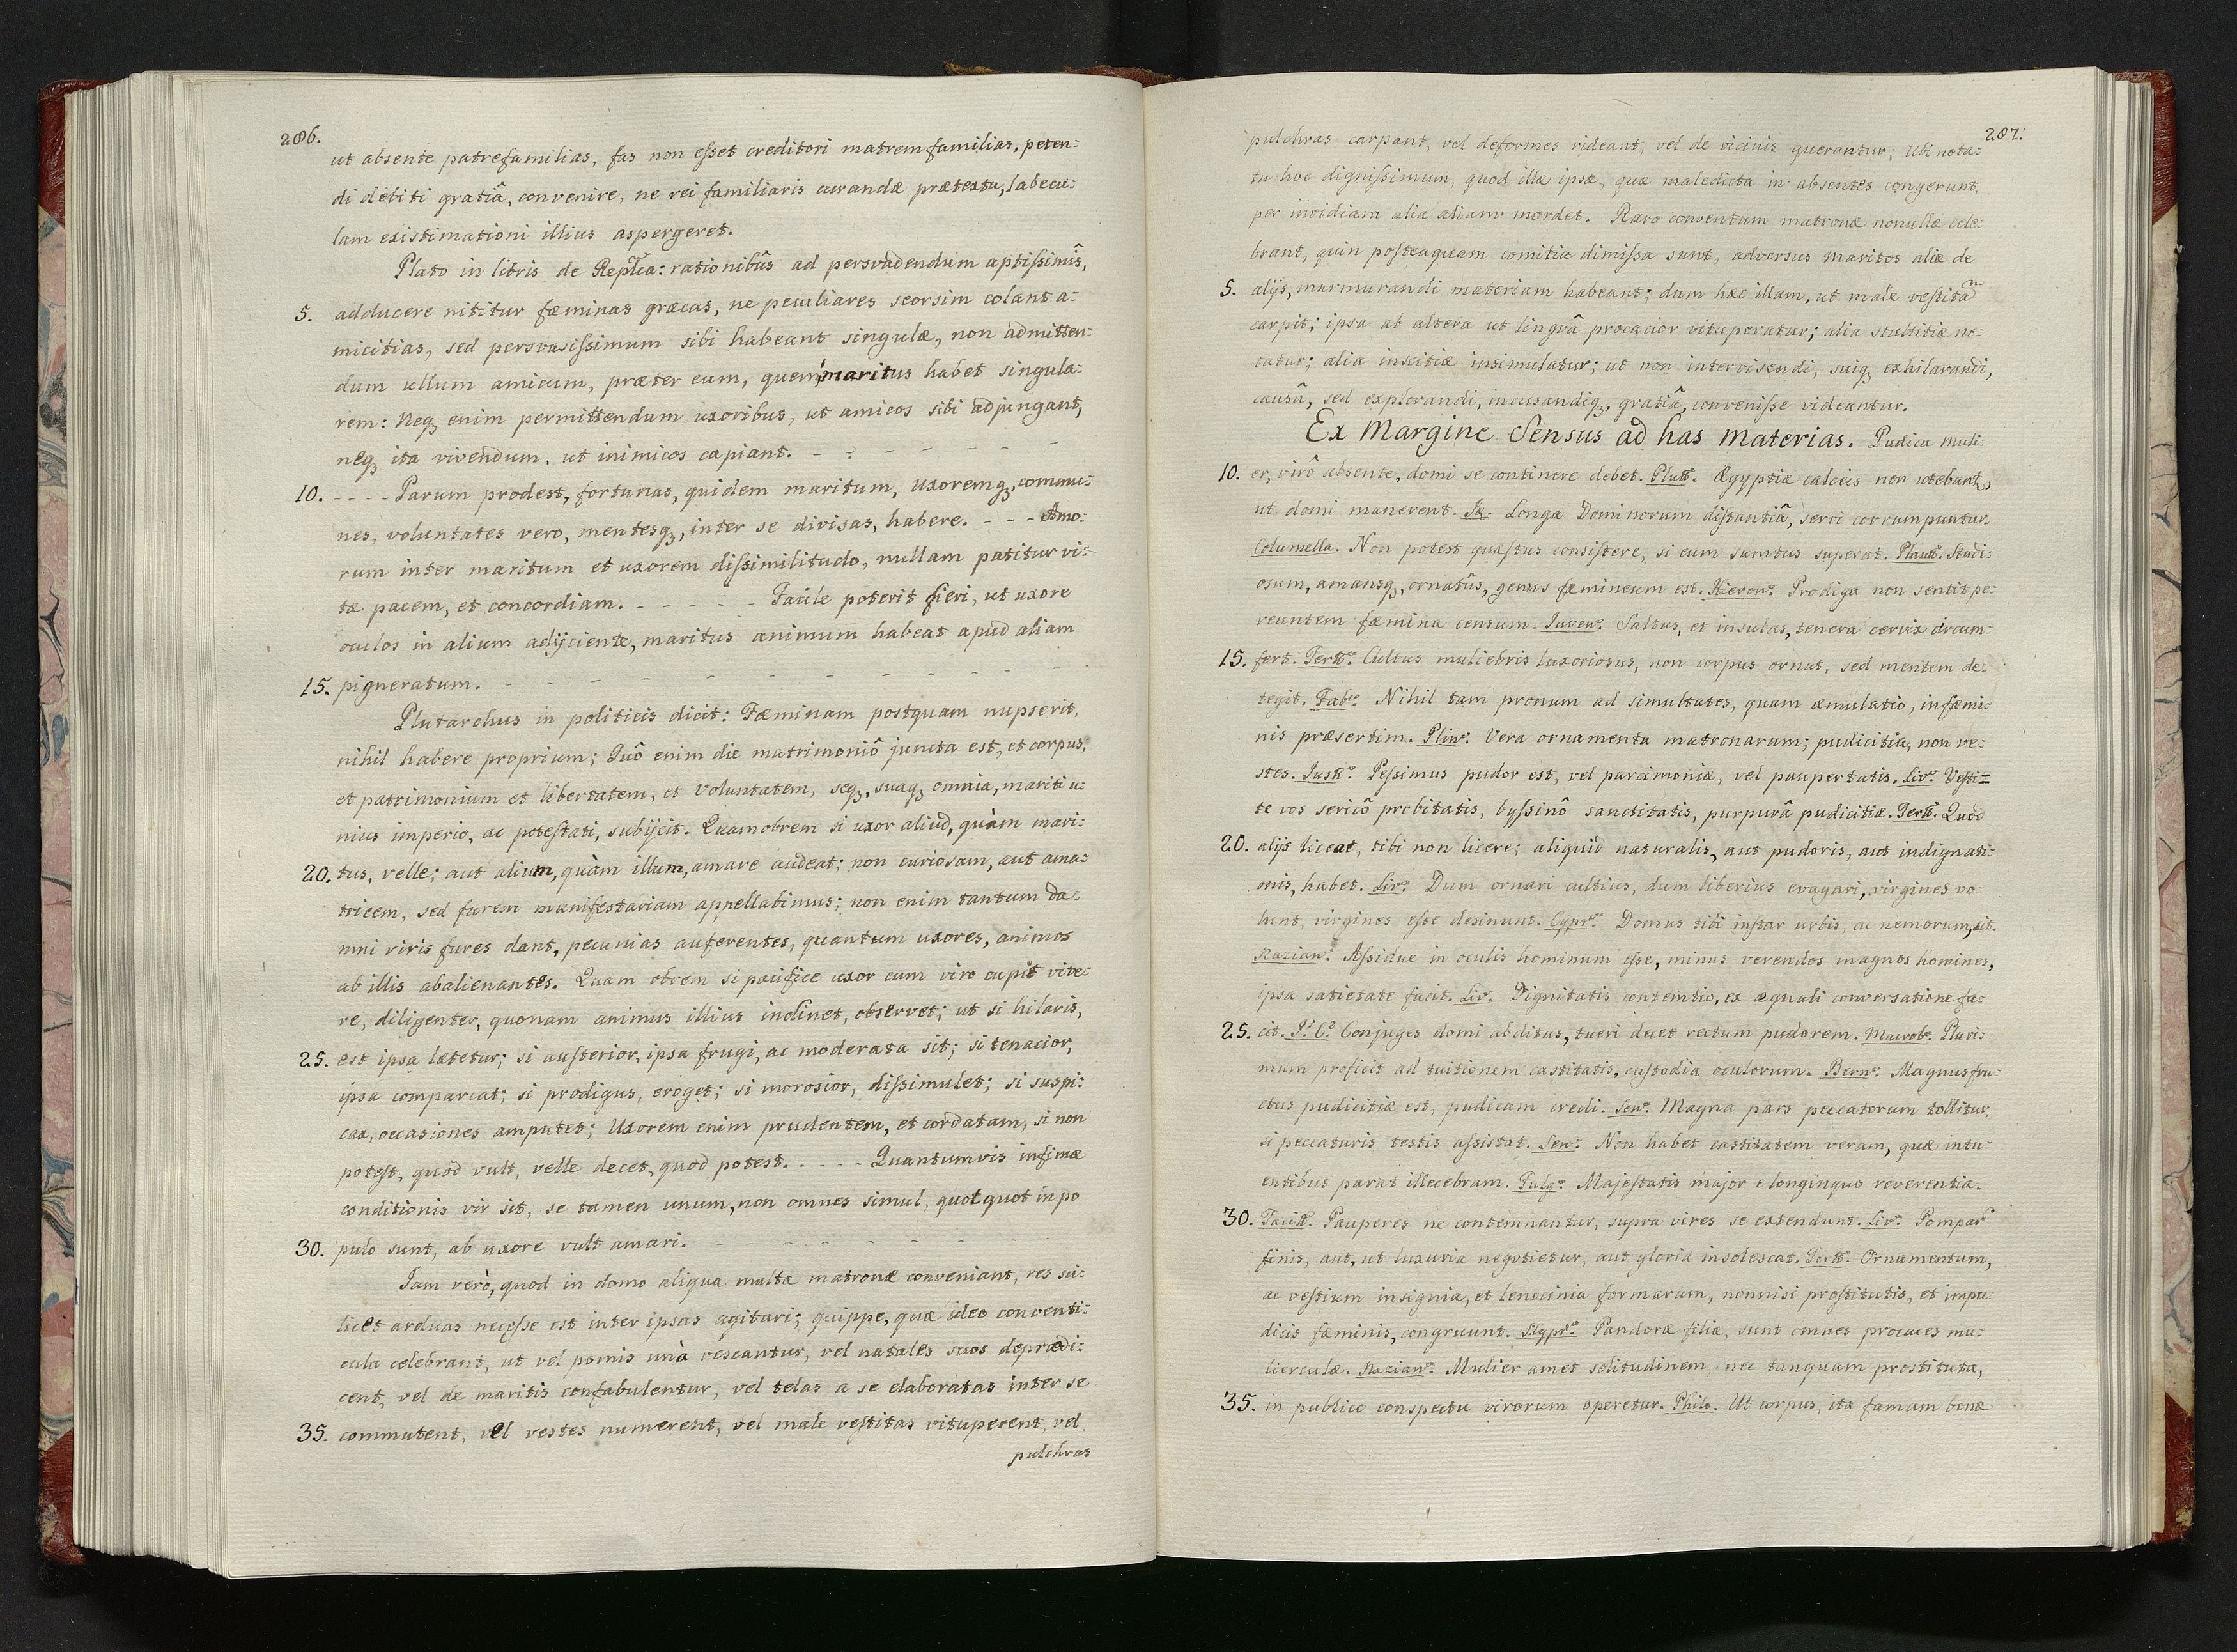 286.
ut absente patrefamilias, fas non esset creditori matremfamilias, peten:
di debiti gratiâ, convenire, ne rei familiaris curandæ prætextu, labecu:
lam existimationi illius aspergeret.
Plato in libris de Replca: rationibûs ad persvadendum aptissimîs,
5. adducere nititur fæminas græcas, ne peculiares seorsim colant a:
micitias, sed persvasissimum sibi habeant singulæ, non admitten:
dum ullum amicum, præter eum, quem maritus habet singula:
rem: Neqꝫ enim permittendum uxoribus, ut amicos sibi adjungant,
neqꝫ ita vivendum, ut inimicos capiant. - - - - - -
10. - - - - Parum prodest, fortunas, quidem maritum, uxoremqꝫ, commu:
nes, voluntates vero, mentesqꝫ, inter se divisas, habere. - - - Amo:
rum inter maritum et uxorem dissimilitudo, nullam patitur vi:
tæ pacem, et concordiam. - - - - - Facile poterit fieri, ut uxore
oculos in alium adijciente, maritus animum habeat apud aliam
15. pigneratum. - - - - - - - - - -
Plutarchus in politicis dicit: Fæminam postquam nupserit,
nihil habere proprium; Quô enim die matrimoniô juncta est, et corpus,
et patrimonium et libertatem, et voluntatem, seqꝫ, suaqꝫ omnia, mariti u:
nius imperio, ac potestati, subijcit. Quamobrem si uxor aliud, quàm mari:
20. tus, velle; aut alium, quàm illum, amare audeat; non curiosam, aut ama:
tricem, sed furem manifestariam appellabimus; non enim tantum da:
mni viris fures dant, pecunias auferentes, quantum uxores, animos
ab illis abalienantes. Quam obrem si pacifice uxor cum viro cupit vive:
re, diligenter, quonam animus illius inclinet, observet; ut si hilaris,
25. est ipsa lætetur; si austerior, ipsa frugi, ac moderata sit; si tenacior,
ipsa comparcat; si prodigus, eroget; si morosior, dissimulet; si suspi:
cax, occasiones amputet; Uxorem enim prudentem, et cordatam, si non
potest, quod vult, velle decet, quod potest. - - - - Quantumvis infimæ
conditionis vir sit, se tamen unum, non omnes simul, quotquot in po
30. pulo sunt, ab uxore vult amari. - - - - - - -
Jam verò, quod in domo aliqua multæ matronæ conveniant, res sci:
licet arduas necesse est inter ipsas agitari; quippe, quæ ideo conventi:
cula celebrant, ut vel pomis unà vescantur, vel natales suos deprædi:
cent, vel de maritis confabulentur, vel telas a se elaboratas inter se
35. commutent, vel vestes numerent, vel male vestitas vituperent, vel
pulchras
287.
pulchras carpant, vel deformes rideant, vel de vicinis querantur; Ubi nota:
tu hoc dignissimum, quod illæ ipsæ, quæ maledicta in absentes congerunt,
per invidiam alia aliam mordet. Raro conventum matronæ nonullæ cele:
brant, quin posteaquam comitia dimissa sunt, adversus maritos aliæ de
5. alijs, murmurandi materiam habeant; dum hæc illam, ut male vestitam
carpit; ipsa ab altera ut lingvâ procacior vituperatur; alia stultitiæ no:
tatur; alia inscitiæ insimulatur; ut non intervisendi, suiqꝫ exhilarandi,
causâ, sed explorandi, incusandiqꝫ, gratiâ, convenisse videantur.
Ex Margine Sensus ad has materias. Pudica muli:
10. er, virô absente, domi se continere debet. Plutt. Ægyptiæ calceis non utebant,
ut domi manerent. Longa Dominorum distantiâ, servi corrumpuntur.
Columella. Non potest quæstus consistere, si eum sumtus superat. Plautt. Studi:
osum, amansqꝫ, ornatûs, genus fæmineum est. Hieron. Prodiga non sentit pe:
reuntem fæmina censum. Juven. Saltus, et insulas, tenera cervix circum:
15. fert. Tertt. Cultus muliebris luxoriosus, non corpus ornat, sed mentem de:
tegit. Fab. Nihil tam pronum ad simultates, quam æmulatio, in fæmi:
nis præsertim. Plin. Vera ornamenta matronarum; pudicitia, non ve:
stes. Justt. Pessimus pudor est, vel parcimoniæ, vel paupertatis. Liv. Vesti=
te vos sericô probitatis, byssinô sanctitatis, purpurâ pudicitiæ. Tertt. Quod
20. alijs liceat, tibi non licere; aliquid naturalis, aut pudoris, aut indignati:
onis, habet. Liv. Dum ornari cultius, dum liberius evagari, virgines vo:
lunt, virgines esse desinunt. Cypr. Domus tibi instar urbis, ac nemorum, sit.
Nazian. Assidue in oculis hominum esse, minus verendos magnos homines,
ipsa satietate facit. Liv. Dignitatis contemtio, ex æquali conversatione fa:
25. cit. J. C. Conjuges domi abditas, tueri decet rectum pudorem. Macrob. Pluri:
mum proficit ad tuitionem castitatis, custodia oculorum. Bern. Magnus fru:
ctus pudicitiæ est, pudicam credi. Sen. Magna pars peccatorum tollitur,
si peccaturis testis assistat. Sen. Non habet castitatem veram, quæ intu:
entibus parat illecebram. Fulg. Majestatis major e longinquo reverentia.
30. Tacitt. Pauperes ne contemnantur, supra vires se extendunt. Liv. Pompar
finis, aut, ut luxuria negotietur, aut gloria insolescat. Tertt. Ornamentum,
ac vestium insignia, et lenocinia formarum, nonnisi prostitutis, et impu:
dicis fæminis, congruunt. Pandoræ filiæ, sunt omnes procaces mu:
lierculæ. Nazian. Mulier amet solitudinem, nec tanquam prostituta,
35. in publico conspectu virorum operetur. Philo. Ut corpus, ita famam bonæ